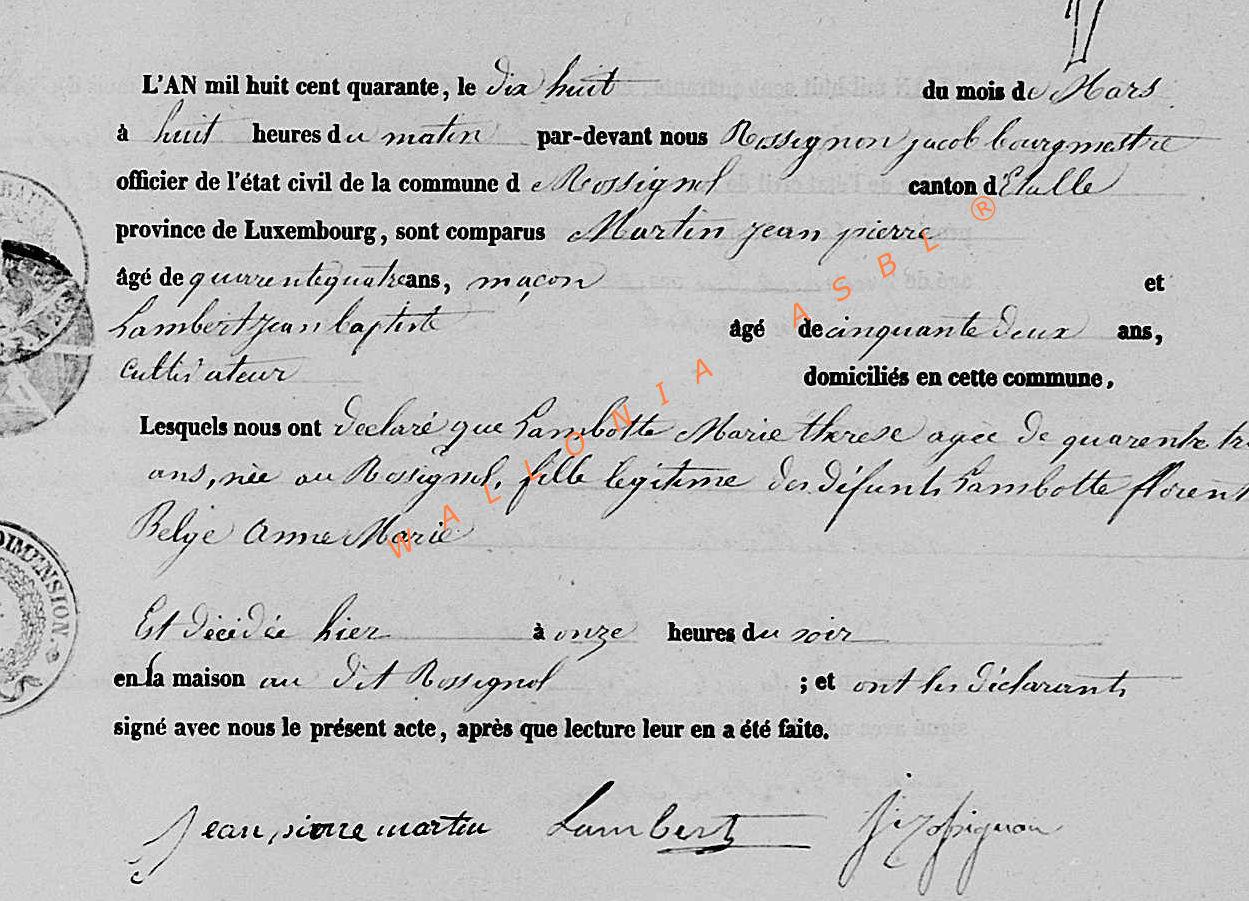 L'AN mil huit cent quarante, le dix huit du mois de Mars
à huit heures du matin par-devant nous Rossignon jacob bourgmestre
officier de l'état civil de la commune d e Rossignol canton d'Etalle
province de Luxembourg, sont comparus Martin jean pierre
âgé de quarentequatre ans, maçon et
Lambert jean baptiste âgé de cinquante deux ans,
cultivateur domiciliés en cette commune.
Lesquels nous ont declaré que Lambotte Marie therese agée de quarente
ans, née au Rossignol, fille legitime des défunts Lambotte florent
Belge Anne Marie
Est décédée hier à onze heures du soir
en la maison au dit Rossignol ; et ont les déclarants
signé avec nous le présent acte, après que lecture leur en a été faite.
jean pierre martin Lambert
WALLONIA ASBL ®
DIMENSION.